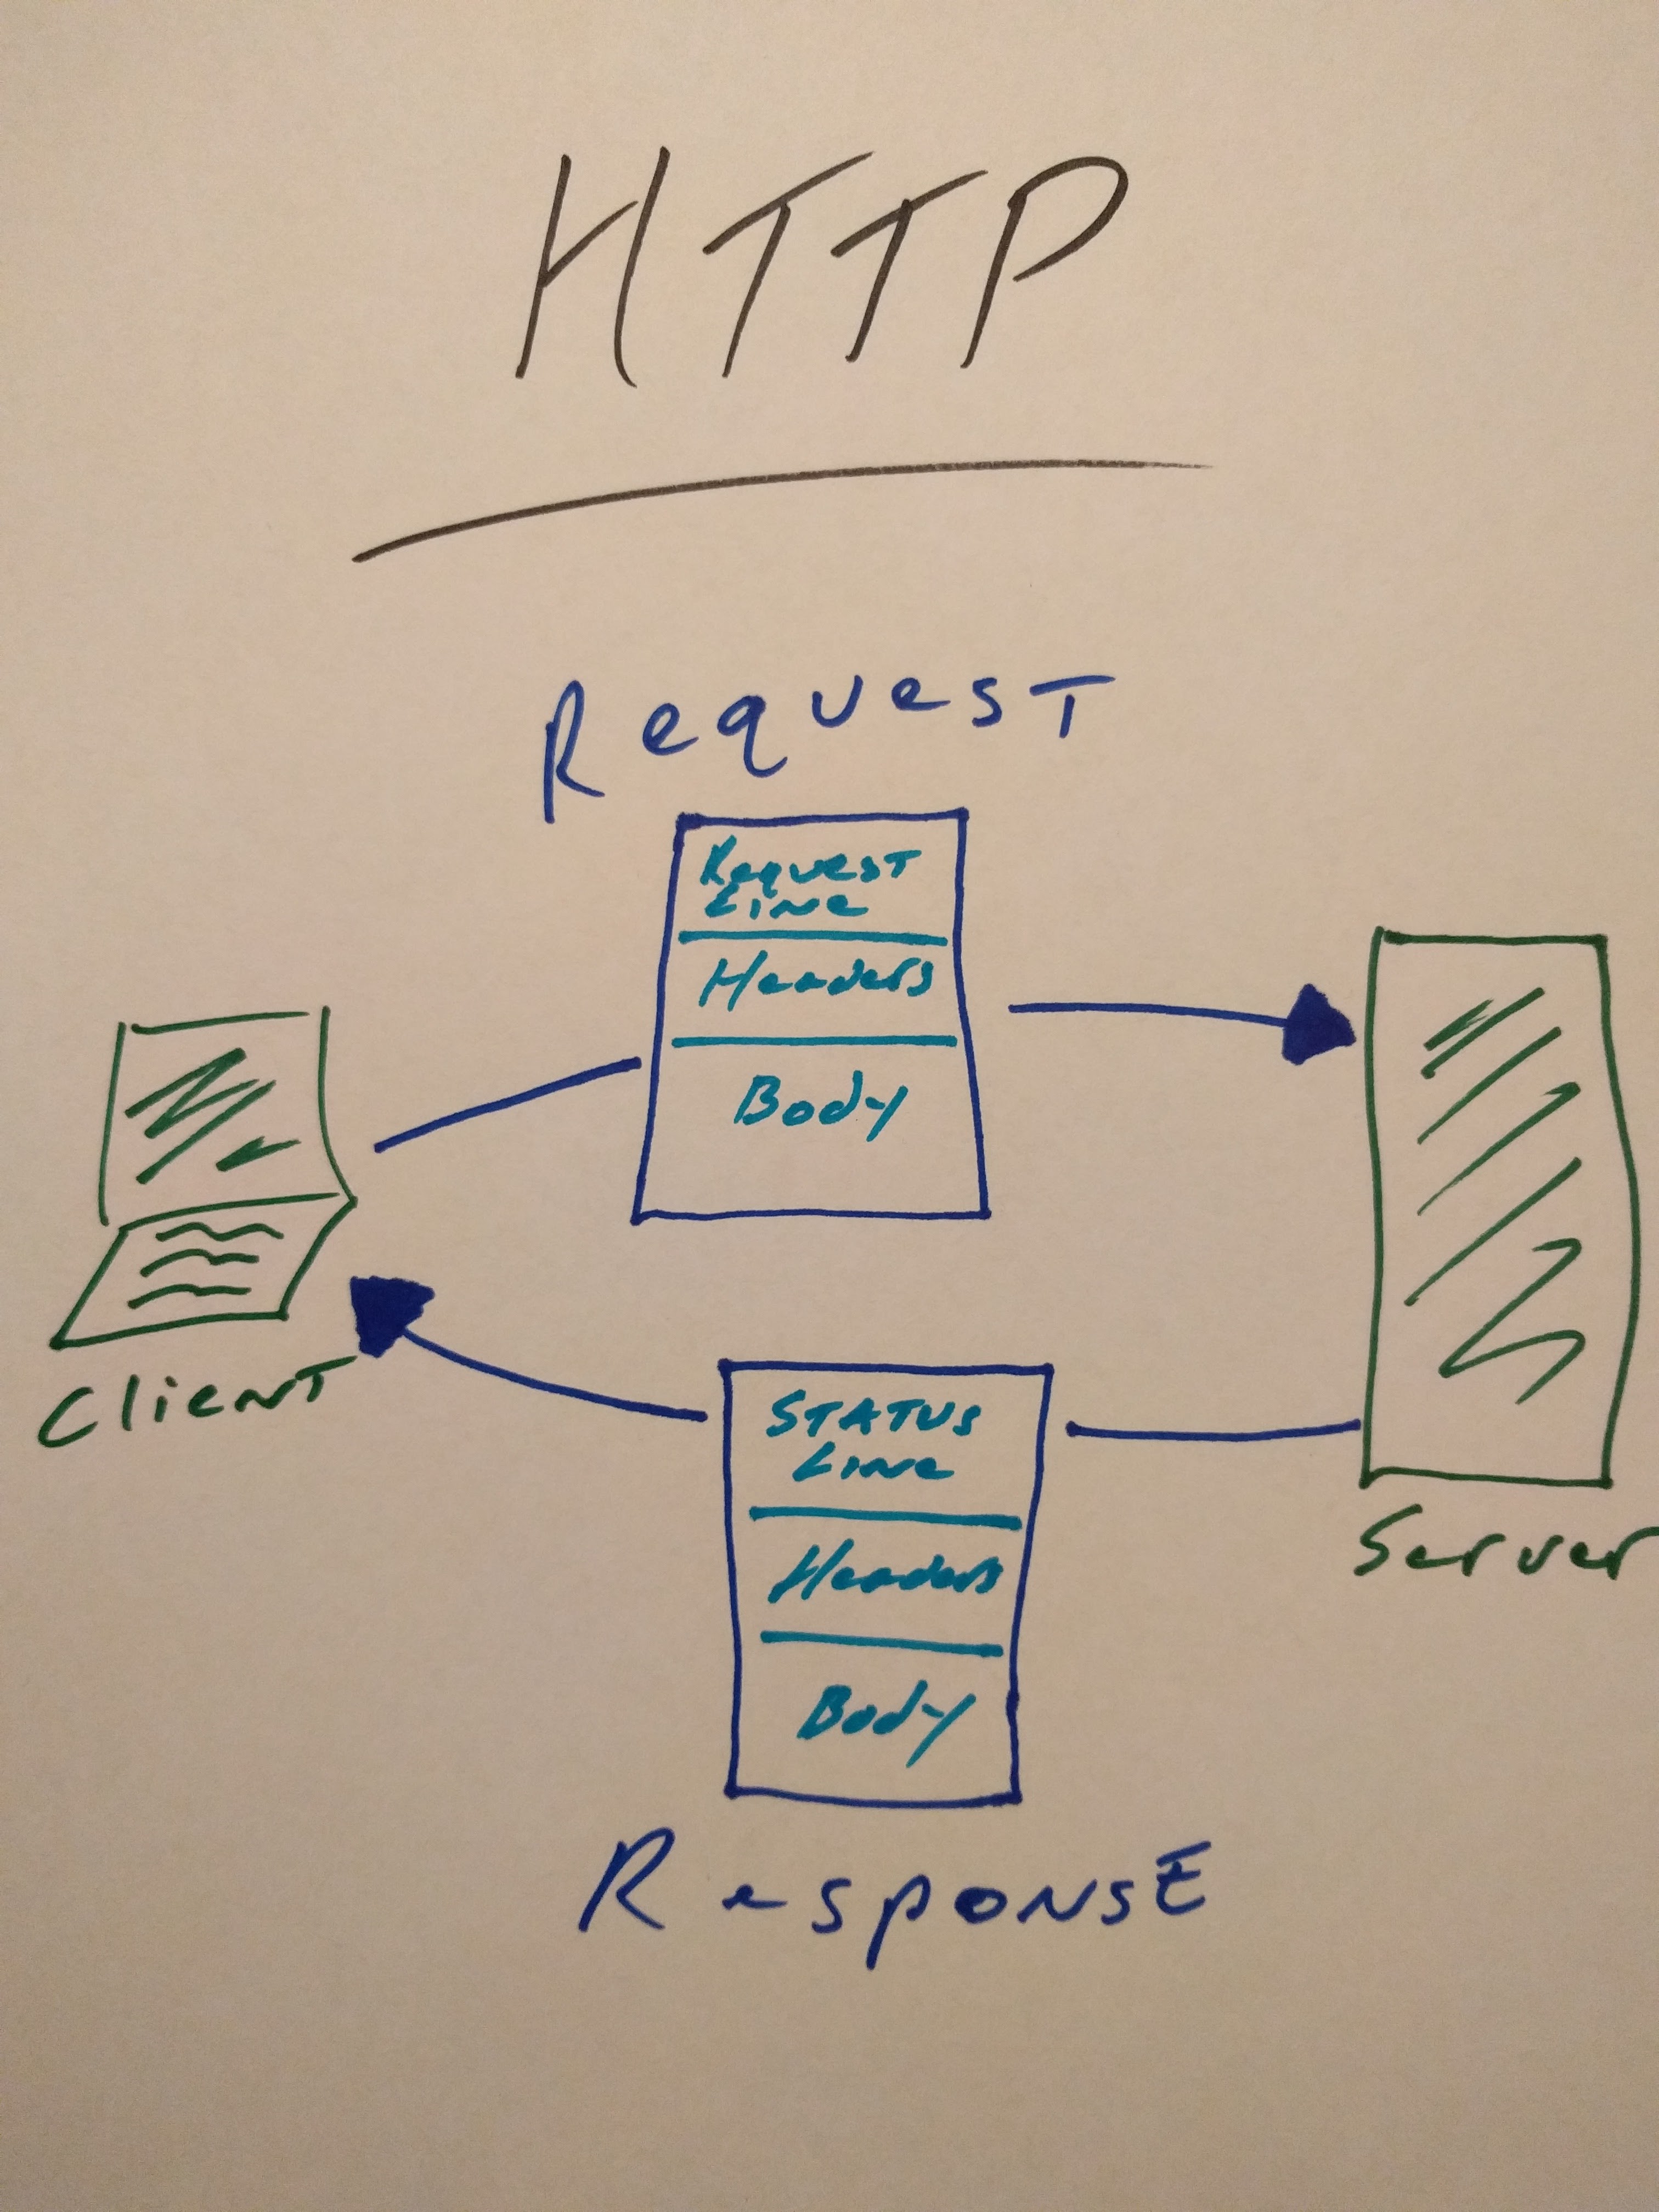 HTTP
Request
Request
Line
Headers
Body
Client
Status
Line
Headers
Body
Server
Response